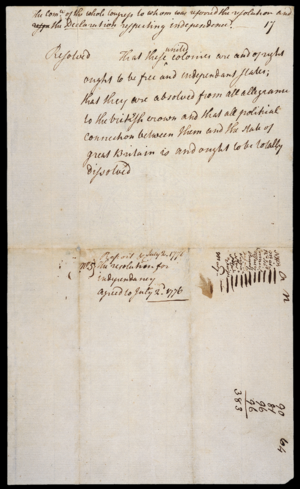 The Comee of the whole Congress to whom was referred the resolution and
the Declaration respecting independence.
17
Resolved That these united colonies are and of right
ought to be free and independant states;
that they are absolved from all allegiance
to the british crown and that all political
connection between them and the state of
great Britain is and ought to be totally
dissolved
Report July 2. 1776
No 5) the resolution for
independancy
agreed to July 2d. 1776
O N
90
81
96
96
383
64